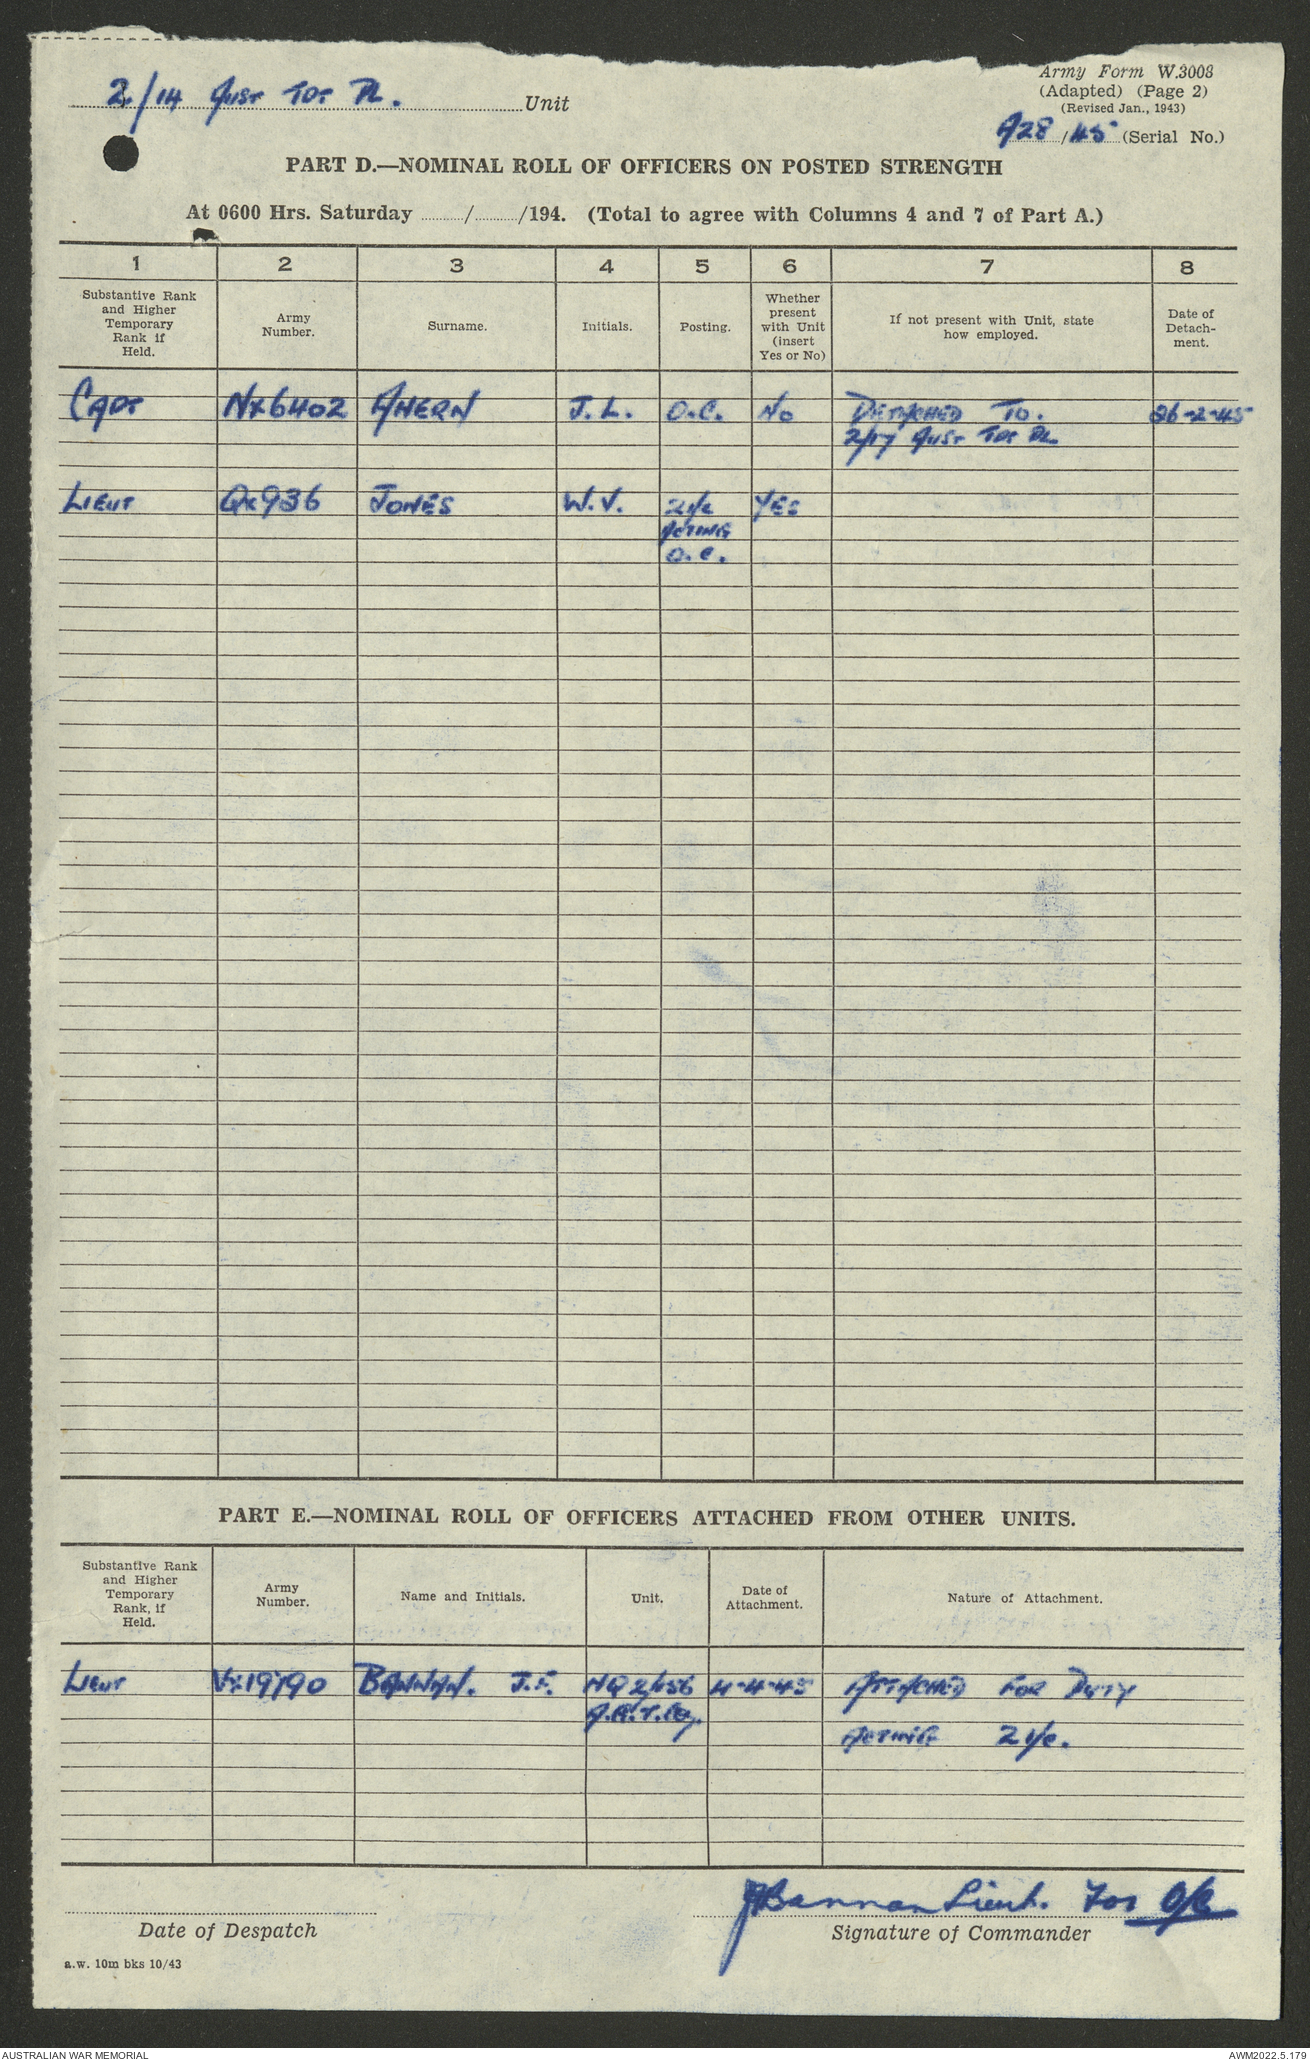 Army Form W.3008
2/14 Aust Tpt Pl. Unit
(Adapted) (Page 2)
(Revised Jan., 1943)
A28/45 (Serial No.)
PART D.—NOMINAL ROLL OF OFFICERS ON POSTED STRENGTH
At 0600 Hrs. Saturday ........../........../194. (Total to agree with Columns 4 and 7 of Part A.)
1 2 3 4 5 6 7 8
Substantive Rank and Higher Temporary Rank if Held.
Army Number.
Surname.
Initials.
Posting.
Whether present with Unit (insert Yes or No)
If not present with Unit, state how employed.
Date of Detach-ment.
CAPT NX6402 AHERN J.L. O.C. NO DETACHED TO. 26-2-45
2/17 AUST TPT PL
LIEUT QX936 JONES W.V. 2I/C YES
ACTING
O.C.
PART E.—NOMINAL ROLL OF OFFICERS ATTACHED FROM OTHER UNITS.
Substantive Rank and Higher Temporary Rank, if Held.
Army Number.
Name and Initials.
Unit.
Date of Attachment.
Nature of Attachment.
LIEUT VX19790 BANNAN. J.F. HQ 2/156 4-4-45 ATTACHED FOR DUTY
A.G.T.Coy.
ACTING 2I/c.
JBannan Lieut. For O/C
Date of Despatch
Signature of Commander
a.w. 10m bks 10/43
AUSTRALIAN WAR MEMORIAL
AWM2022.5.179